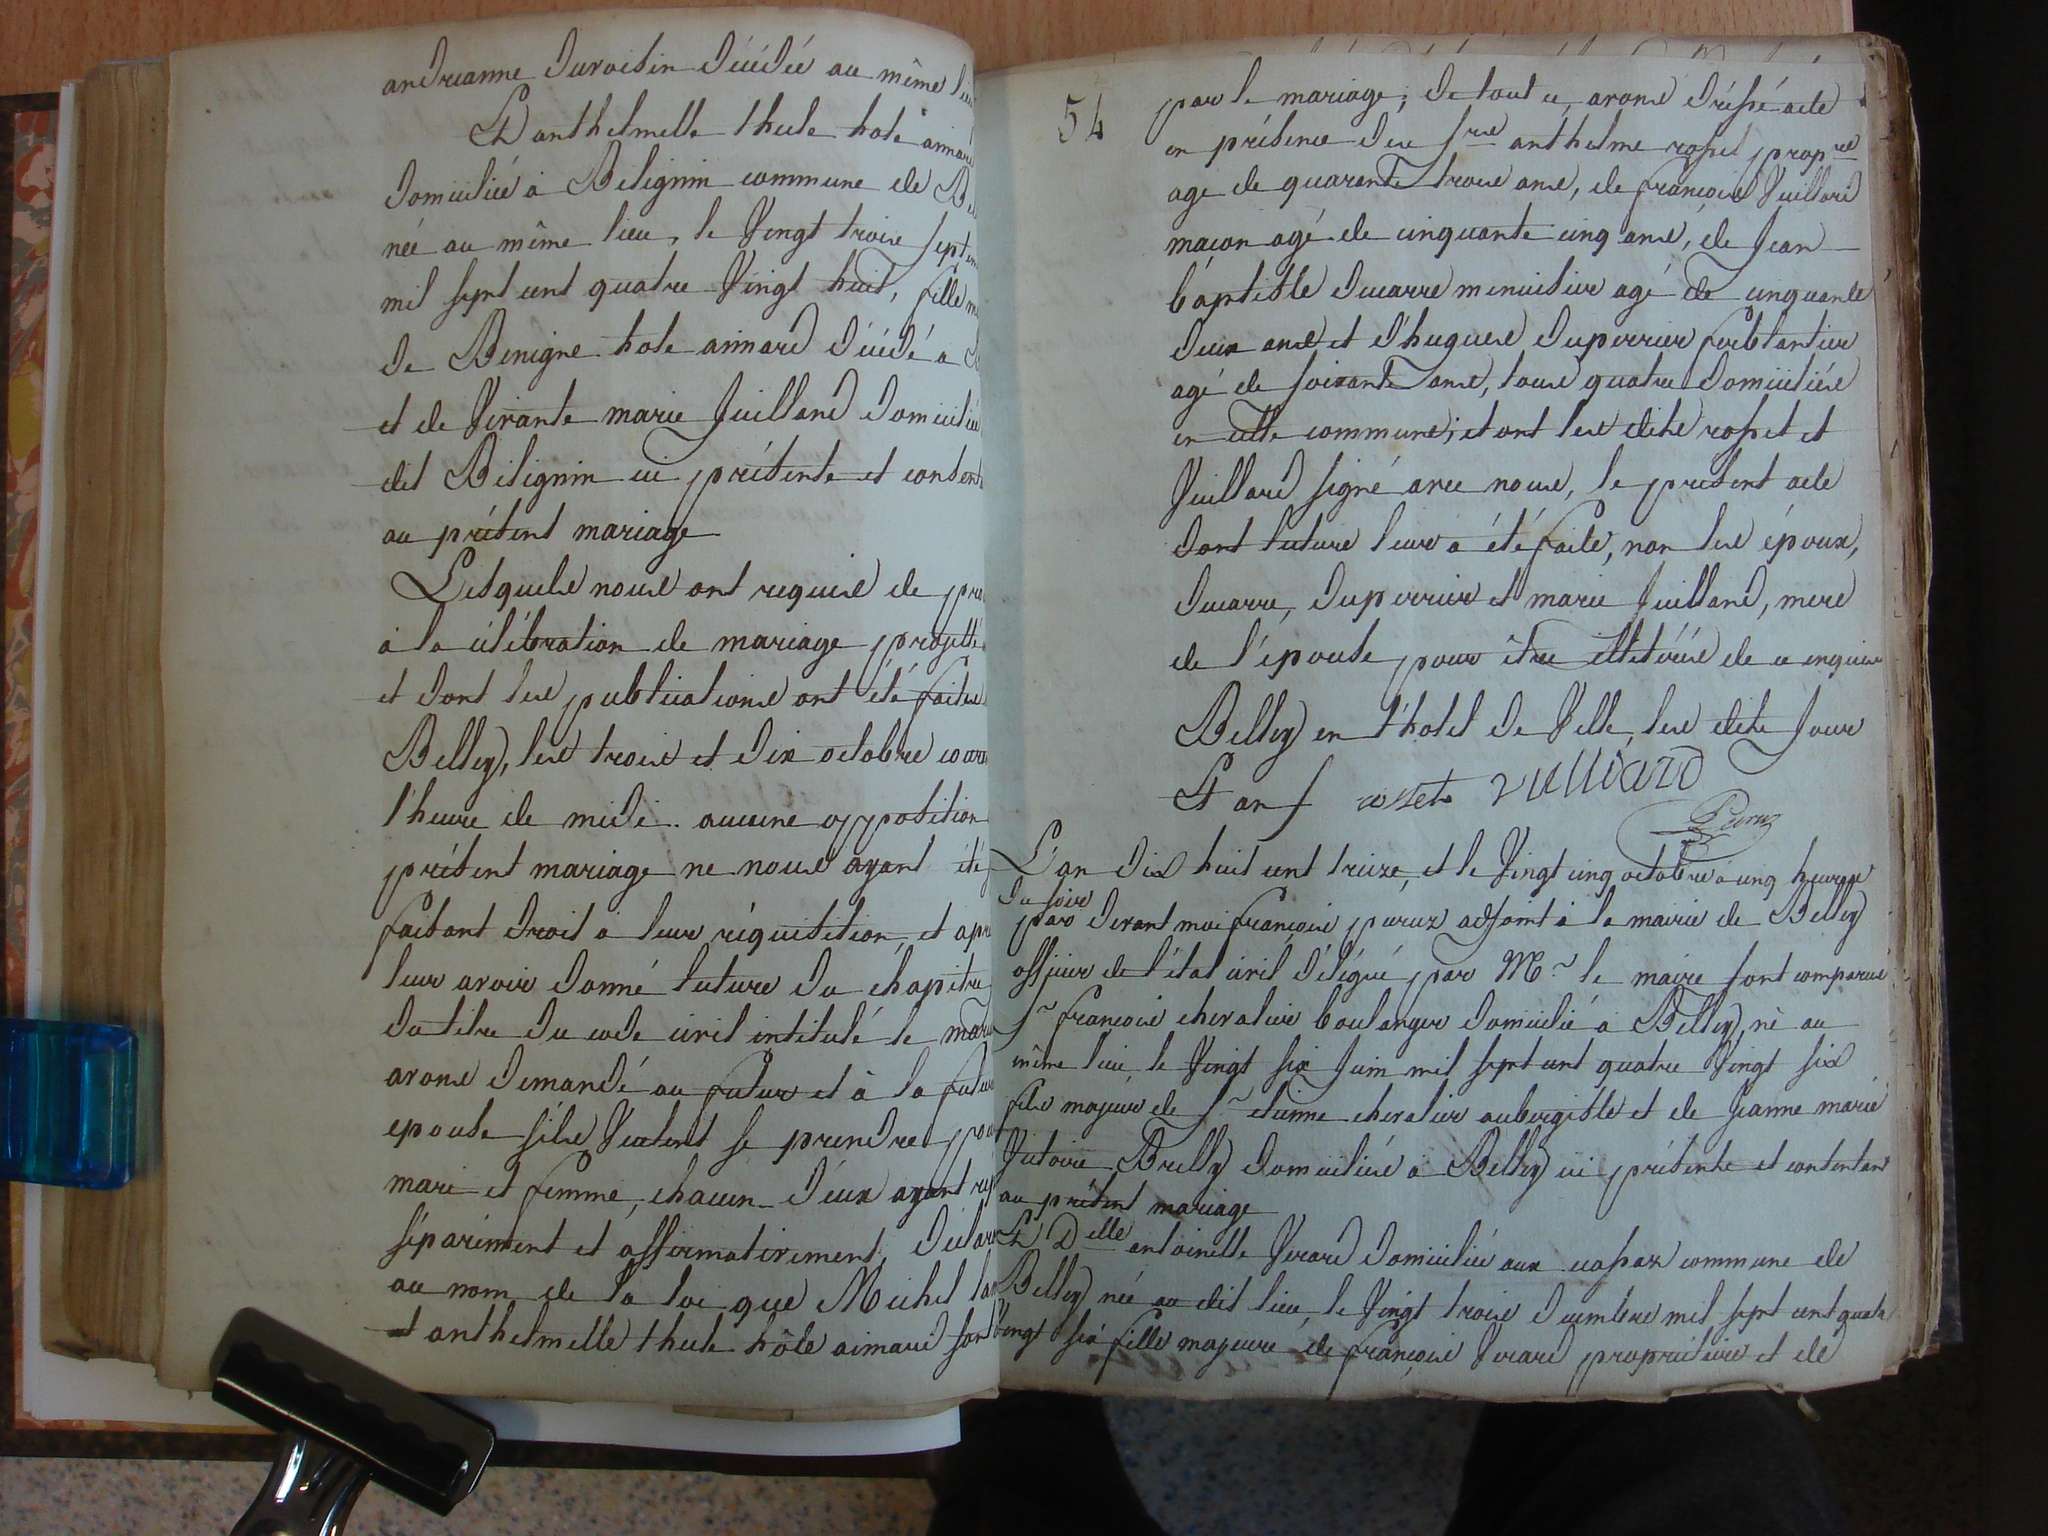 andrianne Duvoisin décédée au même lieu
Et anthelmette thule hote aimard
domiciliée à Bilignin commune de Bel
née au même lieu, le Vingt trois septem
mil sept cent quatre Vingt huit, fille m
de Benigne hote aimard décédé à
et de Vivante marie Juilland domiciliée
dit Bilignin ici présente et consent
au présent mariage
Lesquels nous ont requis de pro
à la célébration de mariage projetté
et dont les publications ont été faites
Belley, les trois et dix octobre cour
l'heure de midi. aucune opposition
présent mariage ne nous ayant été
faisant droit à leur réquisition, et apr
leur avoir donné lecture du chapitre
du titre du code civil intitulé le mari
avons demandé au futur et à la futur
epouse s'ils Veulent se prendre pou
mari et femme, chacun d'eux ayant rép
séparément et affirmativement, déclar
au nom de la loi que Michel
et anthelmette thule hôte aimard sont
54
par le mariage; de tout ce, avons dréssé acte
en présence des srs anthelme rosset prop.re
agé de quarante trois ans, de françois Vuillard
maçon agé de cinquante cinq ans, de Jean
baptiste ducarre menuisier agé de cinquante
deux ans et d'hugues duperrier ferblantier
agé de soixante ans, tous quatre domiciliés
en cette commune; et ont les dits rosset et
Vuillard signé avec nous, le présent acte
dont lecture leur a été faite, non les époux,
ducarre, duperrier et marie Juilland, mere
de l'épouse pour être illitérés de ce enquis
Belley en l'hotel de Ville, les dits jour
Et an rosset vuilliard
Peruz
L'an dix huit cent treize, et le Vingt cinq octobre à cinq heures
du soir
par devant moi françois peruz adjoint à la mairie de Belley
officier de l'état civil délégué par Mr le maire sont comparus
sr françois chevalier boulanger domicilié à Belley, né au
même lieu, le Vingt six Juin mil sept cent quatre Vingt six
fils majeur de sr etienne chevalier aubergiste et de Jeanne marie
Victoire Brilly domiciliés à Belley ici présents et consentant
au présent mariage
Et Delle antoinette Verard domiciliée aux cassax commune de
Belley née au dit lieu, le Vingt trois decembre mil sept cent quatre
Vingt six fille majeure de françois Verard propriétaire et de